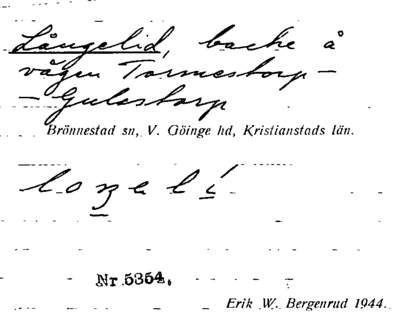 Långelid, backe å
vägen Tormestorp –
– Gulastorp
Brönnestad sn, V. Göinge hd, Kristianstads län.
Nr 5354.
Erik W. Bergenrud 1944.